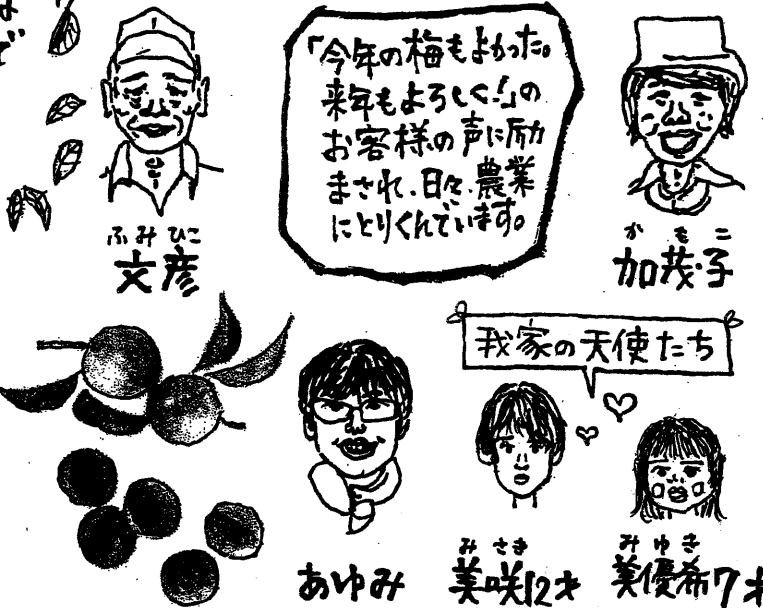 「今年の梅もよかった。
来年もよろしく！」の
お客様の声に励
まされ、日々、農業
にとりくんでいます。
ふみひこ
文彦
かもこ
加茂子
我家の天使たち
あゆみ
みさき
美咲12才
みゆき
美優希7才